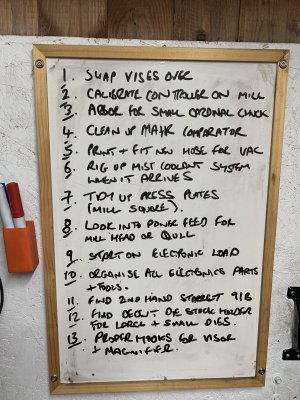 1. SWAP VISES OVER
2. CALIBRATE CONTROLLER ON MILL
3. ARBOR FOR SMALL CARDINAL CHUCK
4. CLEAN UP MAHR COMPARATOR
5. PRINT + FIT NEW HOSE FOR VAC
6. RIG UP MIST COOLANT SYSTEM
WHEN IT ARRIVES
7. TIDY UP PRESS PLATES
(MILL SQUARE).
8. LOOK INTO POWER FEED FOR
MILL HEAD OR QUILL
9. START ON ELECTRONIC LOAD
10. ORGANISE ALL ELECTRONICS PARTS
+ TOOLS.
11. FIND 2ND HAND STARRETT 91B
12. FIND DECENT DIE STOCK HOLDER
FOR LARGE + SMALL DIES.
13. PROPER HOOKS FOR VISOR
+ MAGNIFIER.